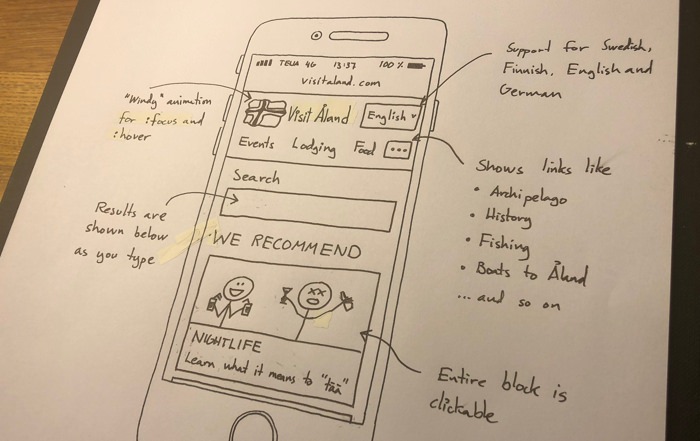 TELIA 4G 13:37 100 %
visitaland.com
Visit Åland
English
Events Lodging Food ...
Search
WE RECOMMEND
NIGHTLIFE
Learn what it means to "tää"
"Windy" animation
for :focus and
:hover
Results are
shown below
as you type
Support for Swedish,
Finnish, English and
German
Shows links like
• Archipelago
• History
• Fishing
• Boats to Åland
... and so on
Entire block is
clickable